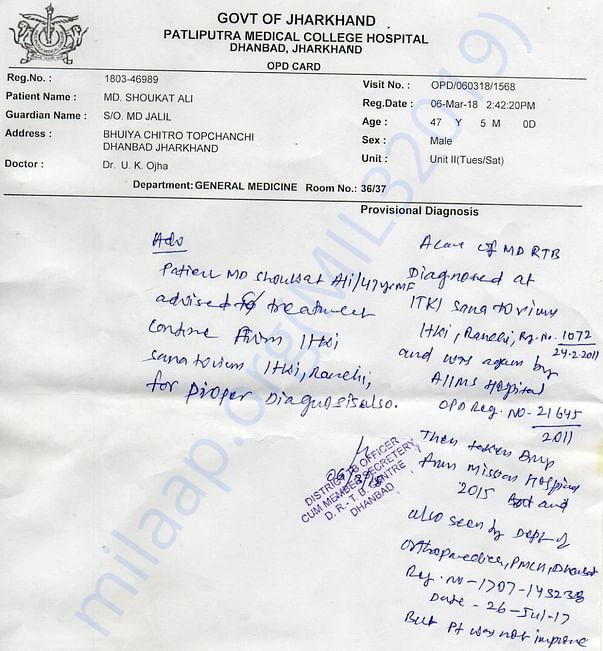 GOVT OF JHARKHAND
PATLIPUTRA MEDICAL COLLEGE HOSPITAL
DHANBAD, JHARKHAND
OPD CARD
Reg.No. : 1803-46989
Visit No. : OPD/060318/1568
Patient Name : MD. SHOUKAT ALI
Reg.Date : 06-Mar-18 2:42:20PM
Guardian Name : S/O. MD JALIL
Age : 47 Y 5 M 0D
Address : BHUIYA CHITRO TOPCHANCHI
DHANBAD JHARKHAND
Sex : Male
Doctor : Dr. U. K. Ojha
Unit : Unit II(Tues/Sat)
Department: GENERAL MEDICINE Room No.: 36/37
Provisional Diagnosis
Adv
Patien MD Shoukat Ali/47yr
advised treatment
from Itki
sanatorium Itki, Ranchi,
for proper Diagnosis also.
A case of MD RTB
Diagnosed at
ITKI sanatorium
Itki, Ranchi, Rg. No. 1072
24-2-2011
and was again by
AIIMS Hospital
OPD Reg. NO - 21645
2011
Then taken
Mission Hospital
2015 and
also seen by Dept of
Orthopaedics, PMCH, Dhanbad
Reg. No - 1707-143238
Date - 26-Jul-17
But Pt was not improve
DISTRICT TB OFFICER
CUM MEMBER SECRETERY
D. R. - T. B. CENTRE
DHANBAD
milaap.org(MIL32019)